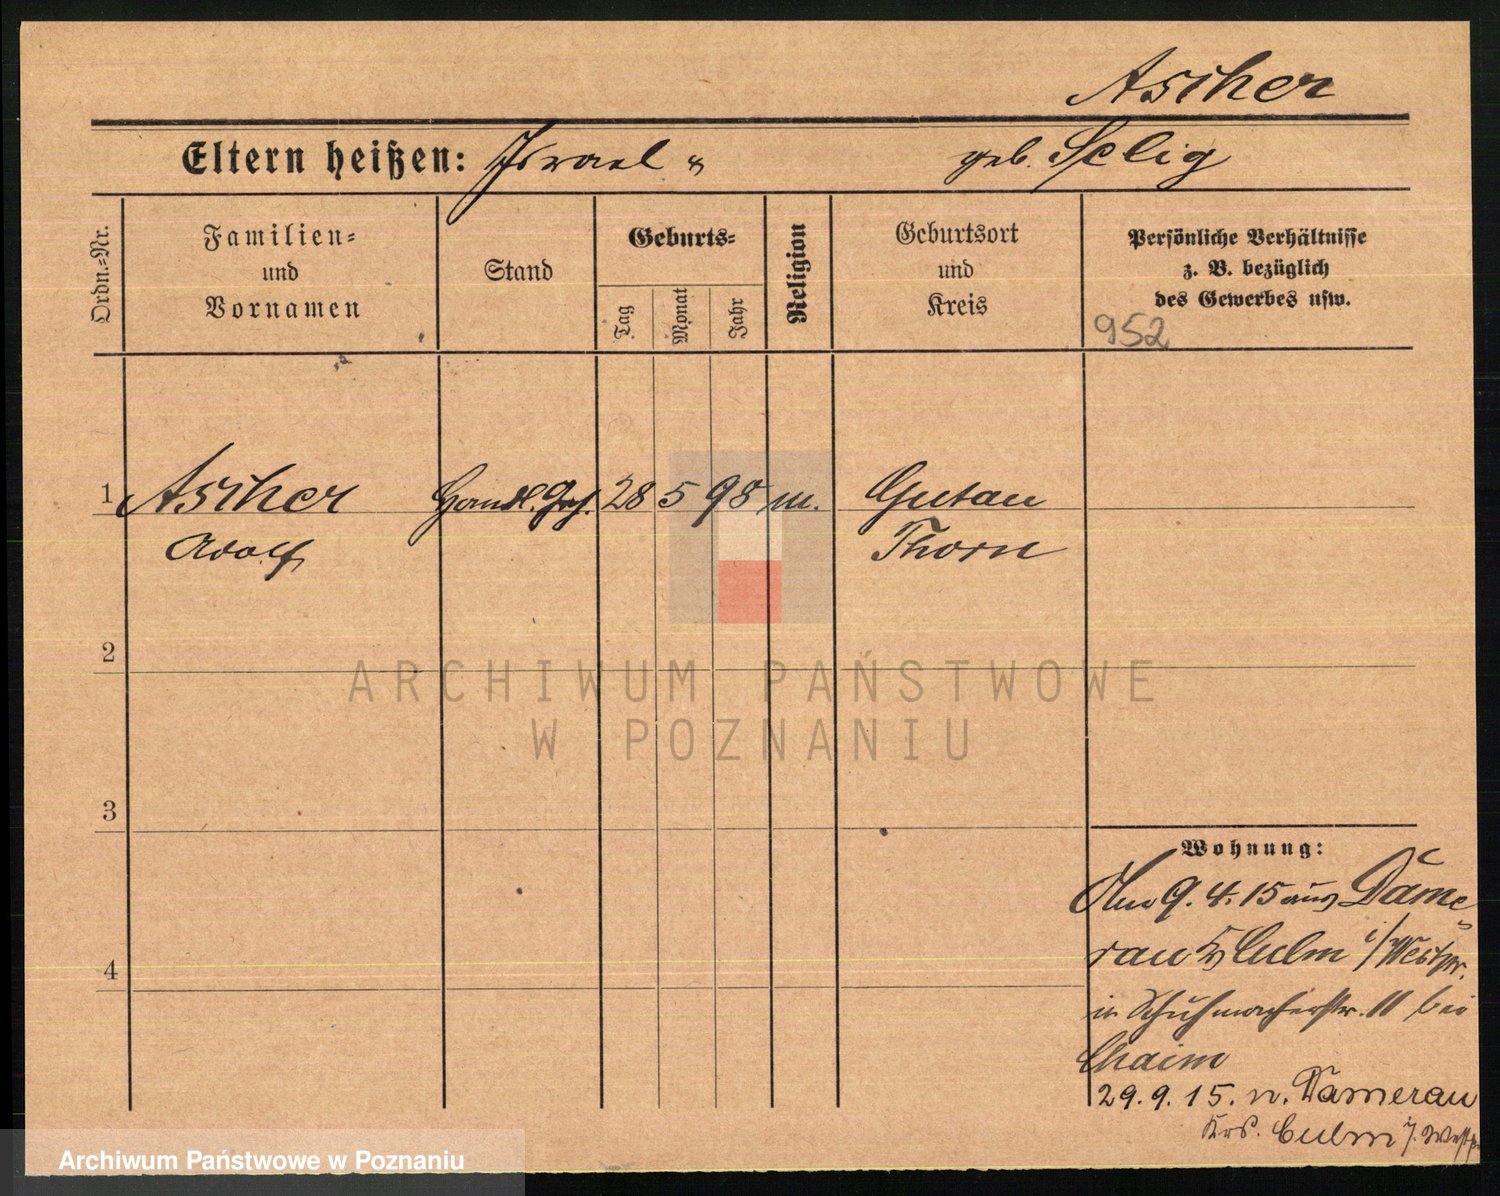 Ascher
Eltern heißen: Israel u geb. Selig
Ordn.-Nr.
Familien-
und
Vornamen
Stand
Geburts-
Tag
Monat
Jahr
Religion
Geburtsort
und
Kreis
Persönliche Verhältnisse
z. B. bezüglich
des Gewerbes usw.
952
1 Ascher Handl. Geh. 28 5 98 m. Gutau
Adolf Thorn
2
ARCHIWUM PAŃSTWOWE
W POZNANIU
3
Wohnung:
Am 9. 4. 15 aus Dame-
rau Culm i/Westpr.
in Schuhmacherstr. 11 bei
Chaim
4
29. 9. 15. n. Damerau
Krs. Culm i. Westpr.
Archiwum Państwowe w Poznaniu